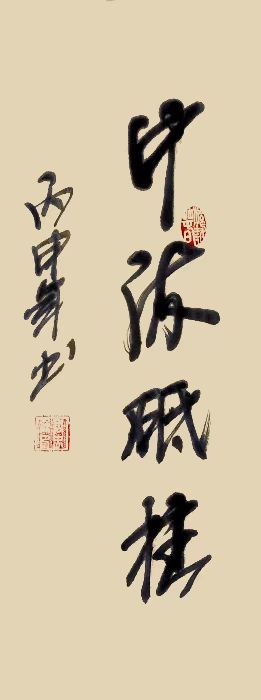 中流砥柱
丙申年书